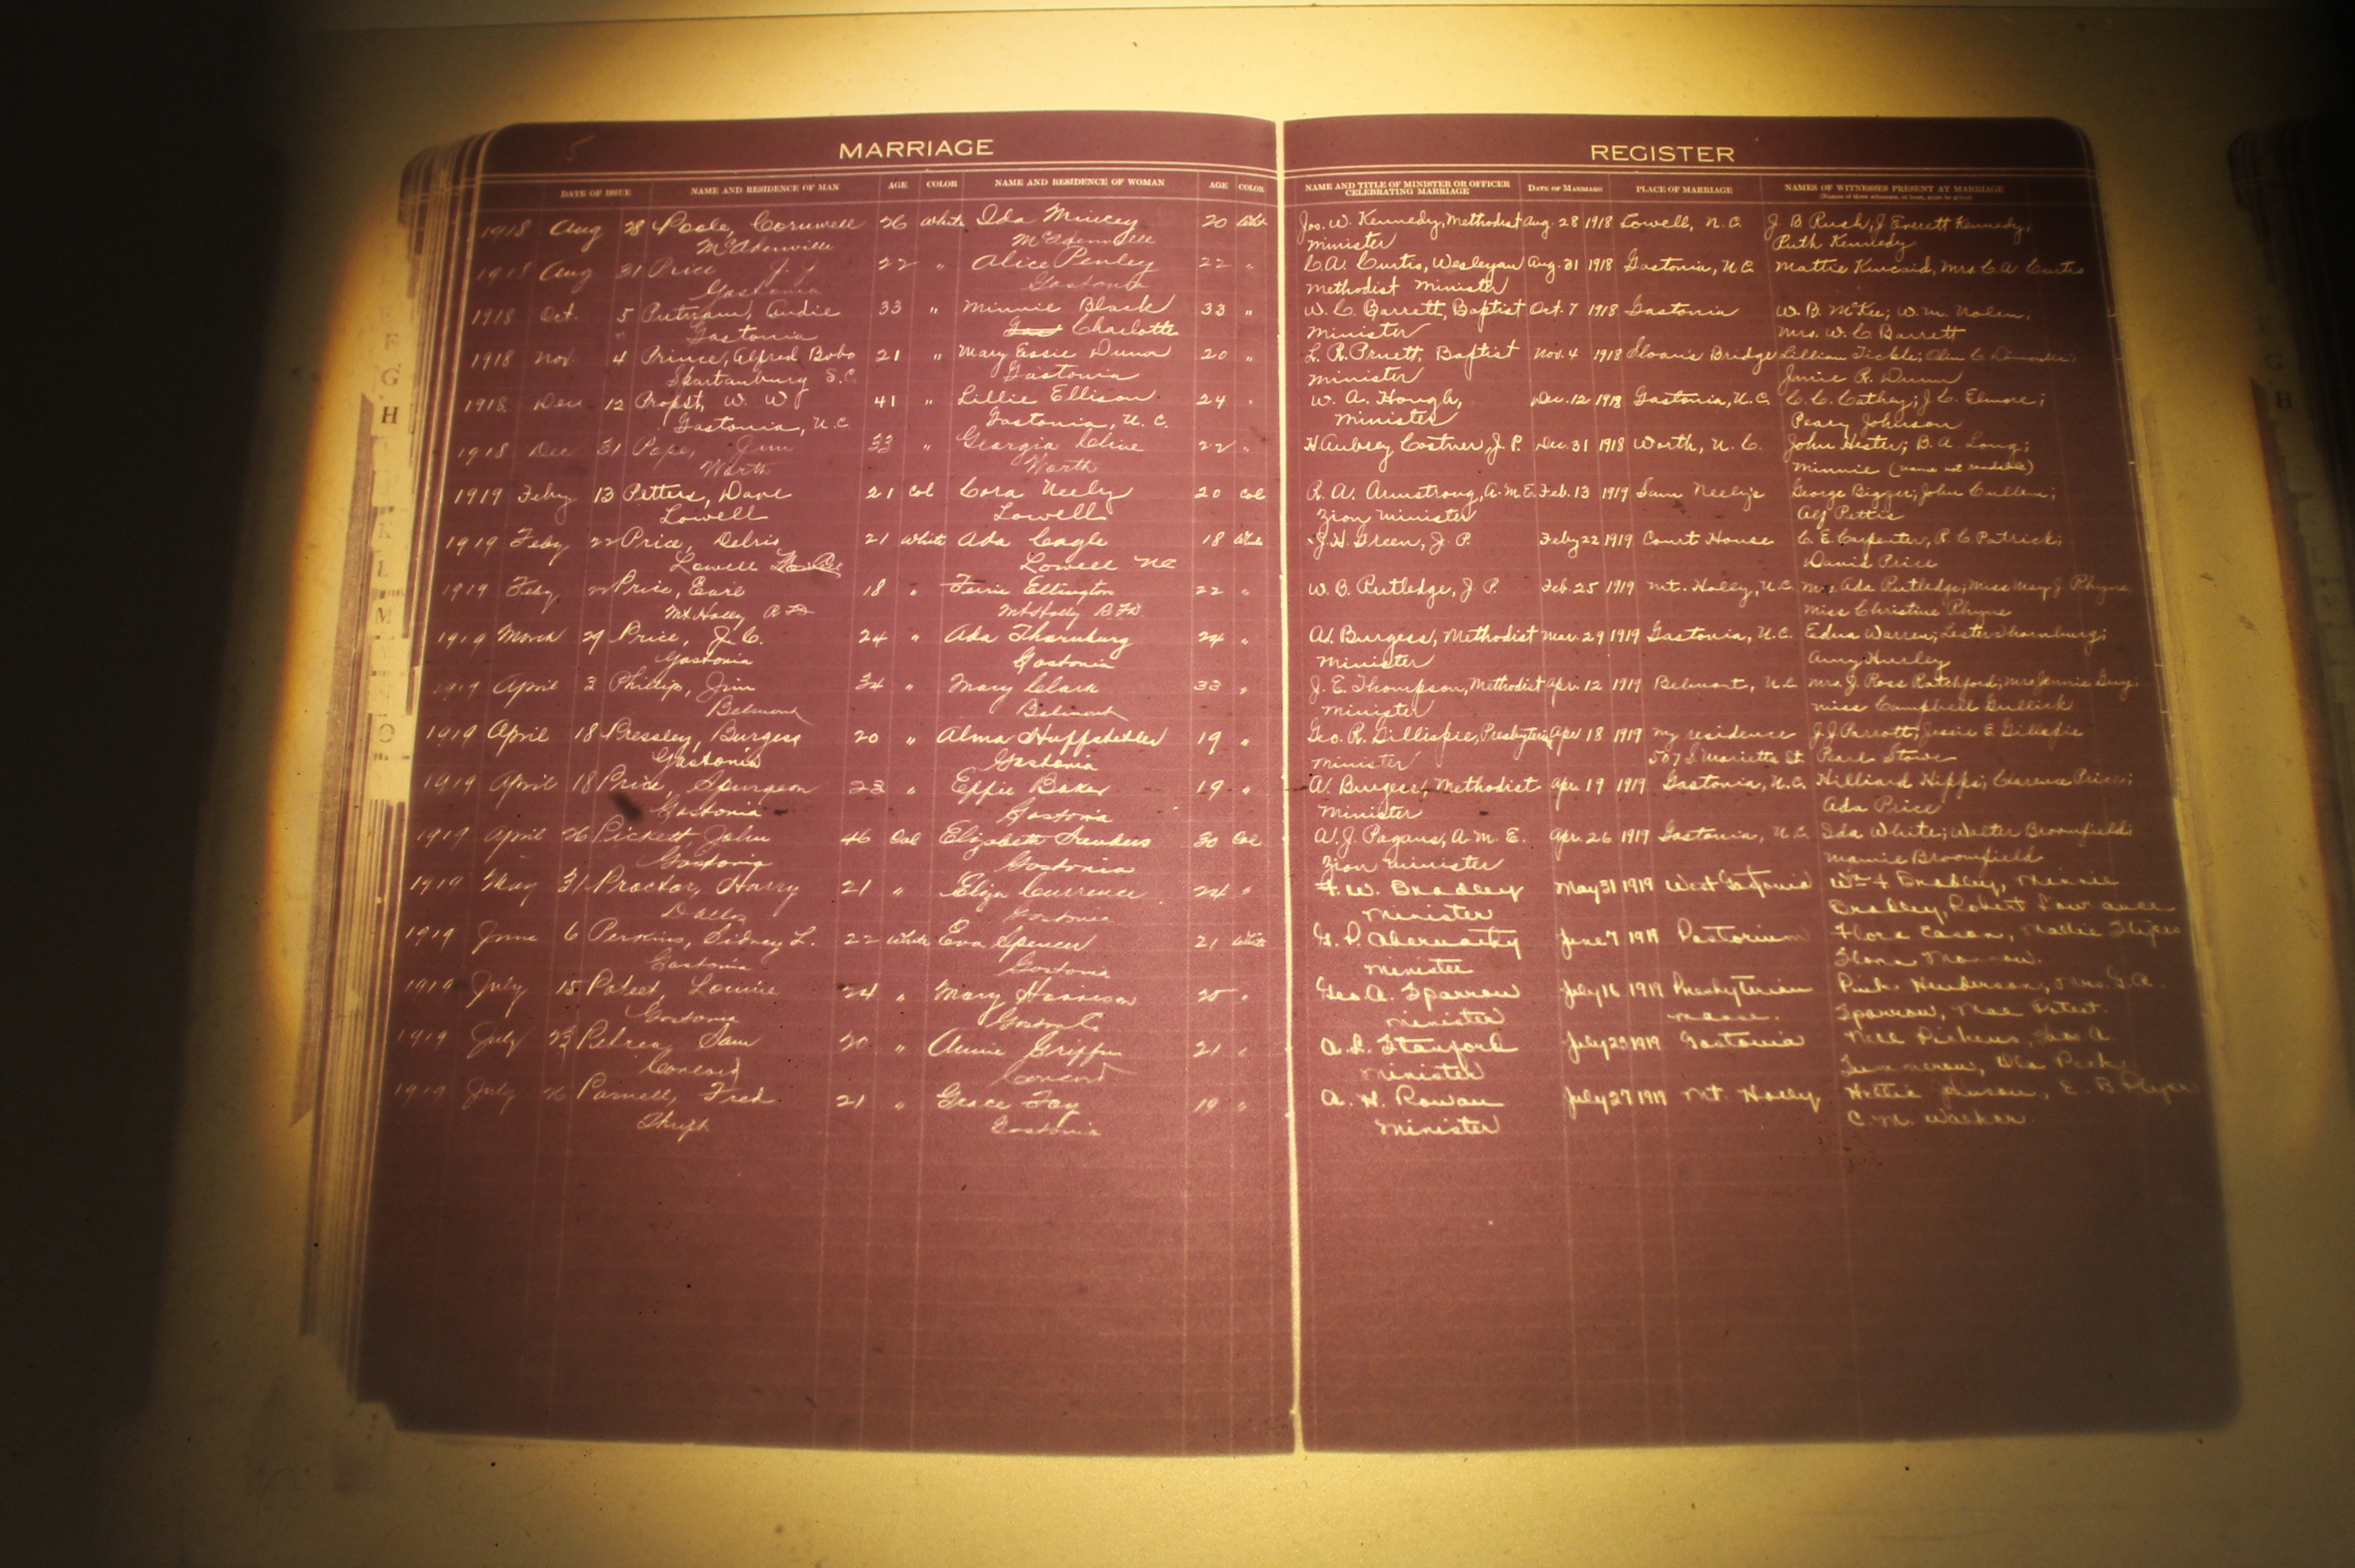 MARRIAGE
DATE OF ISSUE NAME AND RESIDENCE OF MAN AGE COLOR NAME AND RESIDENCE OF WOMAN AGE COLOR
1918 Aug 28 Poole, Cornwell 26 White Ida Mincey 20 White
McAdenville McAdenville
1918 Aug 31 Price J. J. 22 " Alice Penley 22 "
Gastonia Gastonia
1918 Oct. 5 Putnam, Audie 33 " Minnie Black 33 "
Gastonia Charlotte
1918 Nov. 4 Prince, Alfred Bobo 21 " Mary Essie Dunn 20 "
Spartanburg S.C. Gastonia
1918 Dec 12 Propst, W. W. 41 " Lillie Ellison 24 "
Gastonia, N.C. Gastonia, N.C.
1918 Dec 31 Pope, Jim 33 " Georgia Cline 22 "
Worth Worth
1919 Feby 13 Petters, Dave 21 Col Cora Neely 20 Col
Lowell Lowell
1919 Feby 22 Price, Delris 21 White Ada Cagle 18 White
Lowell Lowell NC
1919 Feby 22 Price, Earl 18 " Ferrie Ellington 22 "
Mt Holly Mt Holly
1919 March 29 Price, J. C. 24 " Ada Thornburg 24 "
Gastonia Gastonia
1919 April 3 Phillips, Jim 34 " Mary Clark 33 "
Belmont Belmont
1919 April 18 Pressley, Burgess 20 " Alma Huffstetler 19 "
Gastonia Gastonia
1919 April 18 Price, Spurgeon 23 " Effie Baker 19 "
Gastonia Gastonia
1919 April 26 Pickett, John 46 Col Elizabeth Sanders 30 Col
Gastonia Gastonia
1919 May 31 Proctor, Harry 21 " Eliza Currence 24 "
Dallas Gastonia
1919 June 6 Perkins, Sidney L. 22 White Eva Spencer 21 White
Gastonia Gastonia
1919 July 15 Poteet, Lonnie 24 " Mary Harrison 25 "
Gastonia
1919 July 23 Petrea, Sam 20 " Annie Griffin 21 "
Concord Concord
1919 July 26 Parnell, Fred 21 " Grace Fay 19 "
Thrift Gastonia
REGISTER
NAME AND TITLE OF MINISTER OR OFFICER CELEBRATING MARRIAGE DATE OF MARRIAGE PLACE OF MARRIAGE NAMES OF WITNESSES PRESENT AT MARRIAGE
(Names of three witnesses, at least, must be given)
Jos. W. Kennedy, Methodist Aug 28 1918 Lowell, N.C. J. B. Rush, J Everett Kennedy;
Minister Ruth Kennedy
C. A. Curtis, Wesleyan Aug. 31 1918 Gastonia, N.C. Mattie Kincaid, Mrs C. A. Curtis
Methodist Minister
W. C. Barrett, Baptist Oct. 7 1918 Gastonia W. B. McKee; W. M. Nolen,
Minister Mrs. W. C. Barrett
L. R. Pruett, Baptist Nov. 4 1918 Sloan's Bridge Lillian Tickle; Olin C.
Minister Janie R. Dunn
W. A. Hough, Dec. 12 1918 Gastonia, N.C. C. C. Cathey; J. C. Elmore;
Minister Peary Johnson
H Aubrey Costner, J. P. Dec. 31 1918 Worth, N. C. John Hester; B. A. Long;
Minnie (name not readable)
R. A. Armstrong, A.M.E. Feb. 13 1919 Sam Neely's George Bigger; John Cullen;
Zion Minister Alf Pettis
J. H. Green, J. P. Feby 22 1919 Court House C. E. Carpenter, R. C. Patrick;
David Price
W. B. Rutledge, J. P. Feb. 25 1919 Mt. Holly, N.C. Mrs Ada Rutledge; Miss May J. Rhyne,
Miss Christine Rhyne
A. Burgess, Methodist Mar. 29 1919 Gastonia, N.C. Edna Warren; Lester Thornburg;
Minister Amy Hurley
J. E. Thompson, Methodist Apr. 12 1919 Belmont, N.C. Mrs. J. Ross Ratchford; Mrs Jennis Guy
Minister Miss Campbell Gullick
Geo. R. Gillispie, Presbyterian Apr 18 1919 my residence J. J. Parrott; Jessie E Gillespie
Minister 507 S Marietta St Pearl Stowe
A. Burgess, Methodist Apr. 19 1919 Gastonia, N.C. Hilliard Hipps; Clarence Price;
Minister Ada Price
A. J. Pagans, A. M. E. Apr. 26 1919 Gastonia, N.C. Ida White; Walter Broomfield;
Zion Minister Mamie Broomfield
F. W. Bradley May 31 1919 West Gastonia Wm F Bradley, Minnie
Minister Bradley, Robert
G. P. Abernathy June 7 1919 Pastorium Flora Eason, Mallie
Minister
Geo. A. Sparrow July 16 1919 Presbyterian Pink Henderson, Mrs. G. A.
Minister Manse. Sparrow, Mae Poteet.
A. L. Stanford July 23 1919 Gastonia Nell Pickens, Geo A.
Minister Ola Peck
A. H. Rowan July 27 1919 Mt. Holly Hettie Johnson, E. B.
Minister C. M. Walker
F
G
H
K
L
M
N
O